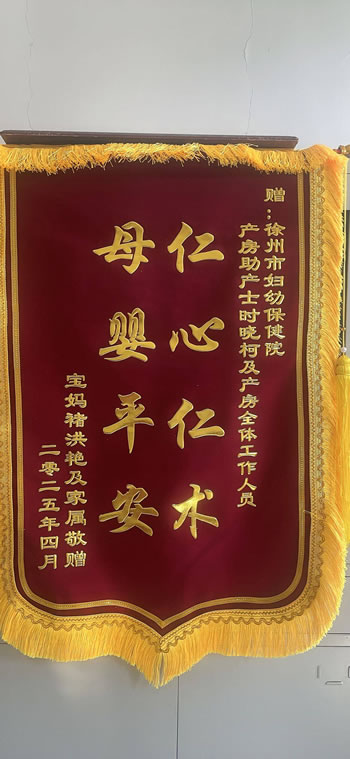 赠：徐州市妇幼保健院
产房助产士时晓柯及产房全体工作人员
仁心仁术
母婴平安
宝妈褚洪艳及家属敬赠
二零二五年四月